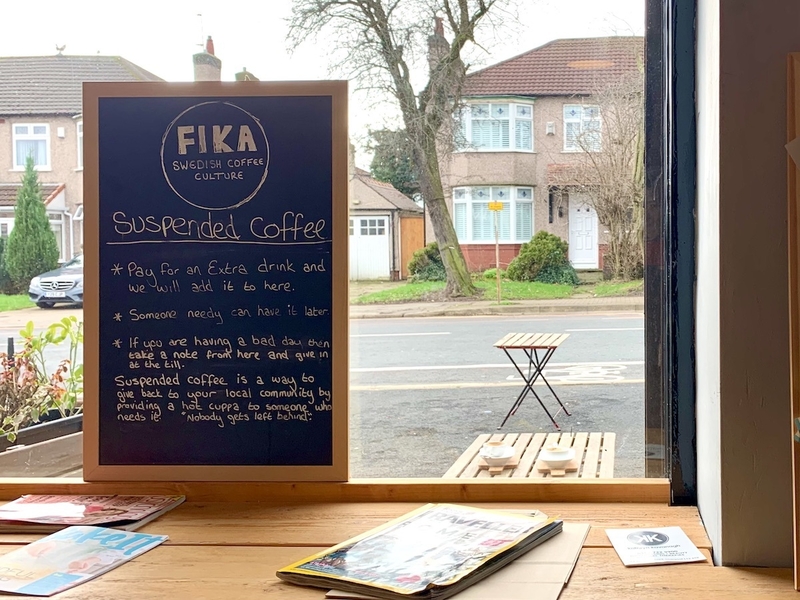 FIKA
SWEDISH COFFEE
CULTURE
Suspended Coffee
* Pay for an Extra drink and
we will add it to here.
* Someone needy can have it later.
* If you are having a bad day then
take a note from here and give in
at the till.
Suspended coffee is a way to
give back to your local community by
providing a hot cuppa to someone who
needs it. "Nobody gets left behind".
KK